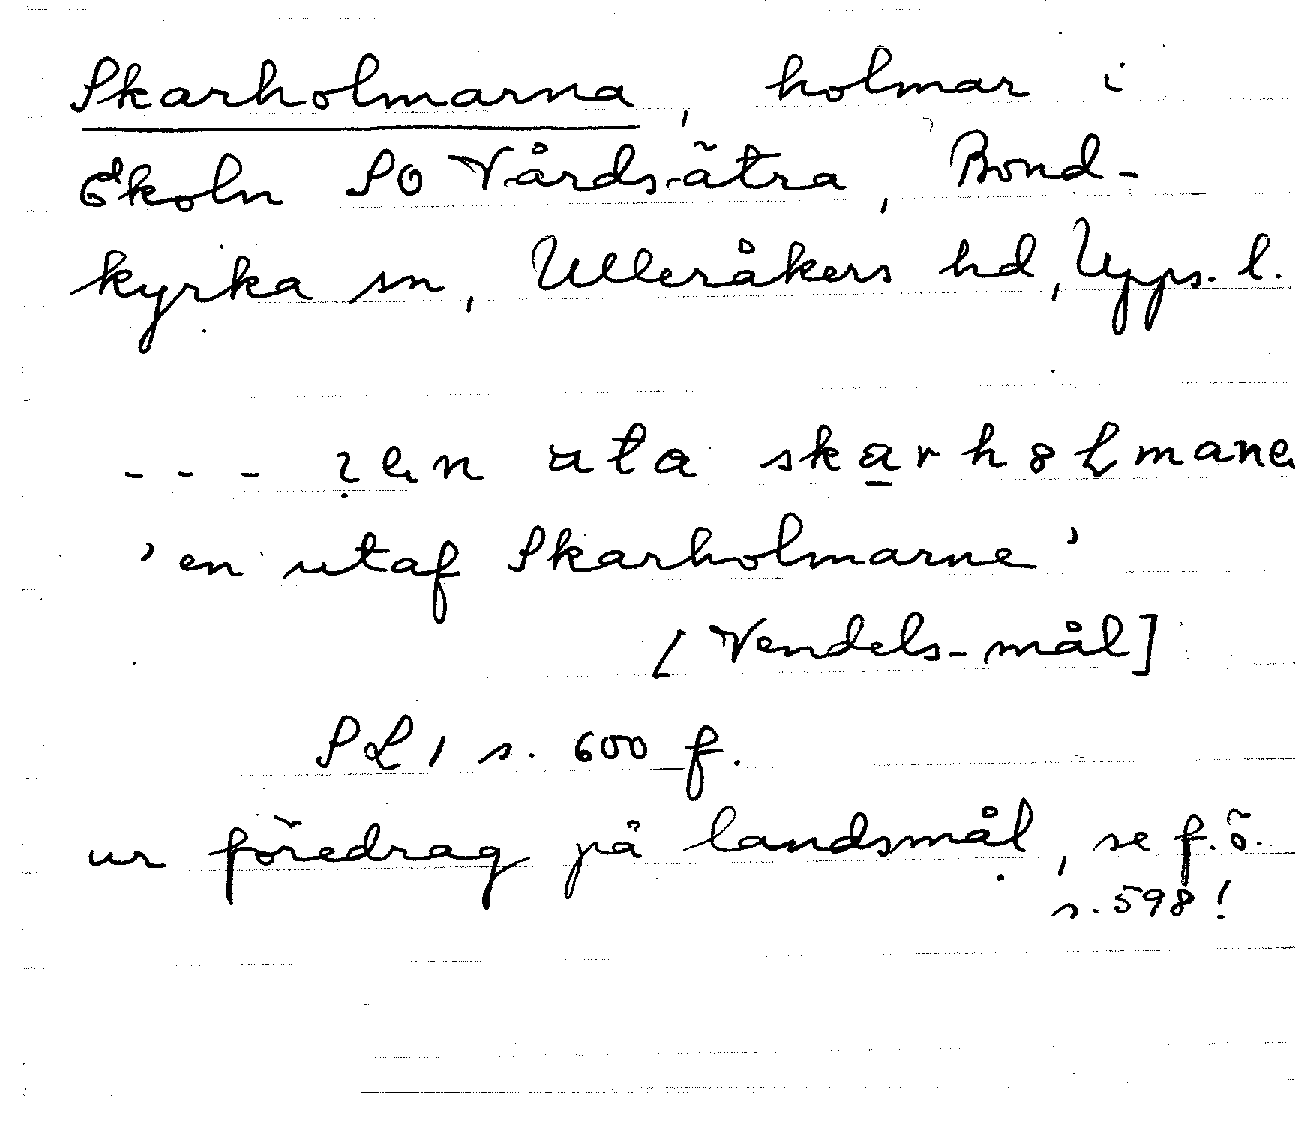 Skarholmarna, holmar i
Ekoln SO Vårdsätra, Bond-
kyrka sn, Ulleråkers hd, Upps. l.
- - - en uta skarholmane
'en utaf Skarholmarne'
[Vendels-mål]
SL 1 s. 600 f.
ur föredrag på landsmål, se f.ö.
s. 598!